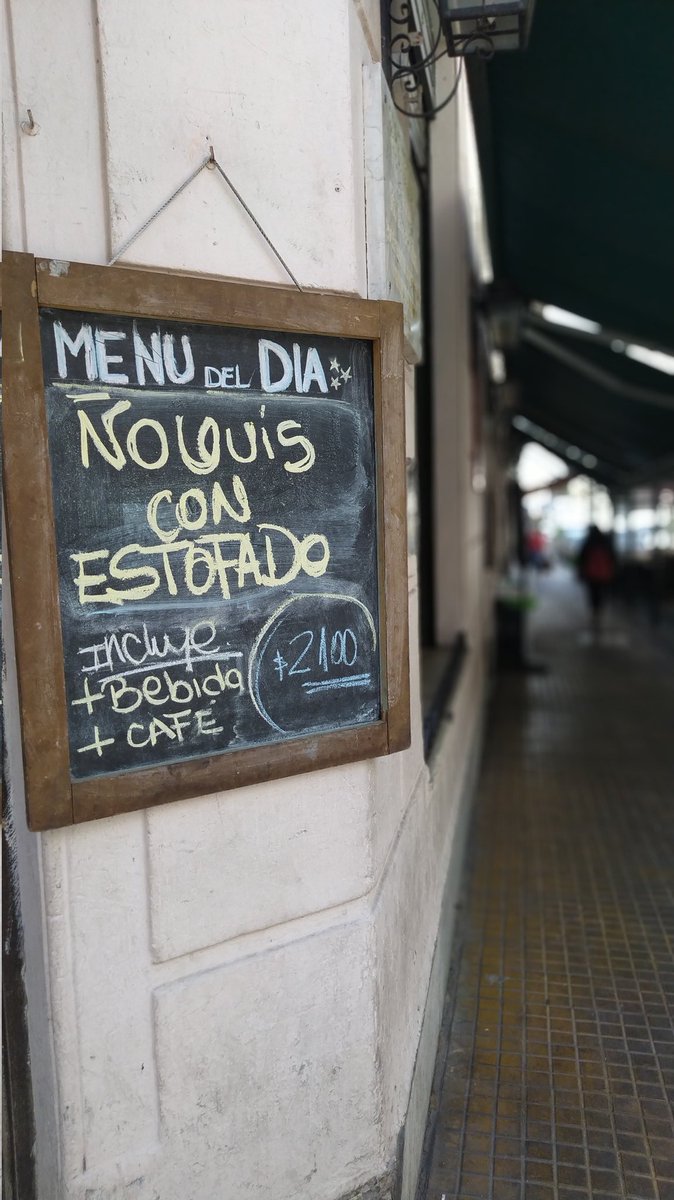 MENU DEL DIA
ÑOQUIS
CON
ESTOFADO
Incluye
+ Bebida
+ CAFÉ
$2100